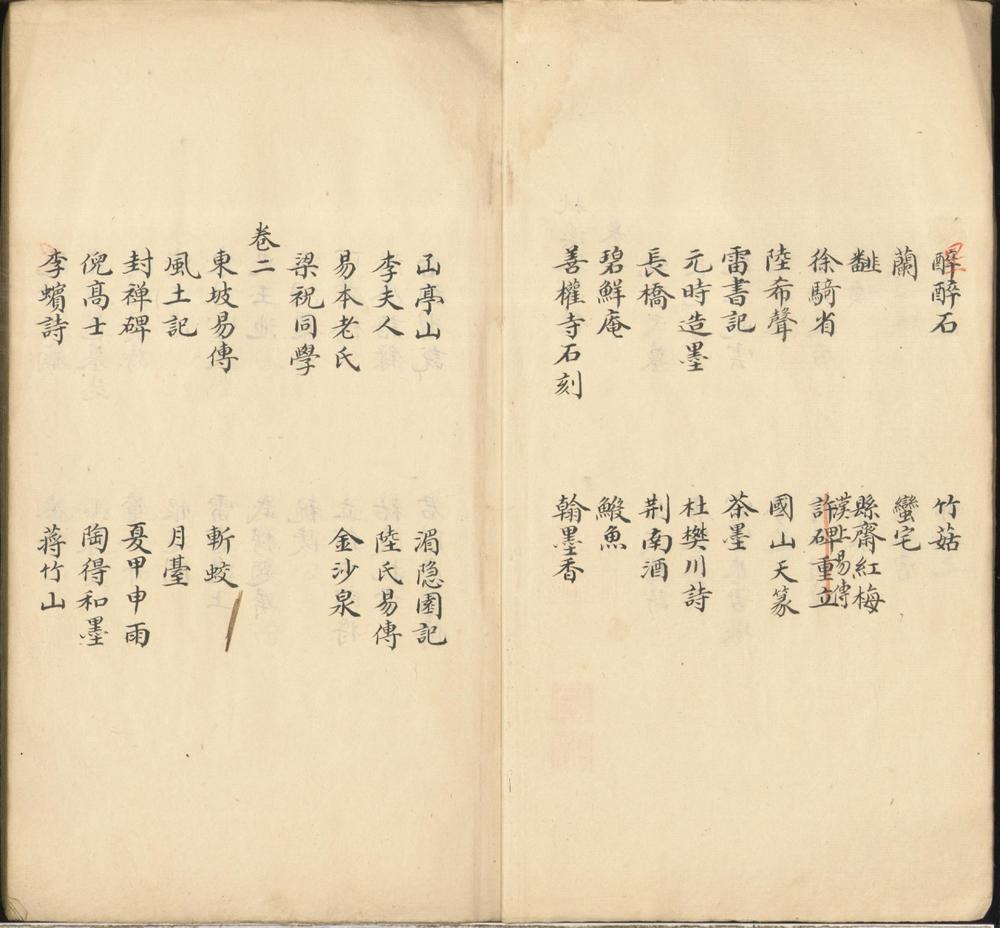 醒醉石　竹菇
蘭　蠻宅
縣齋紅梅
漢上易傳
徐騎省　許碑重立
陸希聲　國山天篆
雷書記　茶墨
元時造墨　杜樊川詩
長橋　荆南酒
碧鮮庵　鰕魚
善權寺石刻　翰墨香
亭山　湄隐園記
李夫人　陸氏易傳
易本老氏　金沙泉
梁祝同學
卷二
東坡易傳　斬蛟
風土記　月臺
封禅碑　憂甲申雨
倪高士　陶得和墨
李蠙詩　蔣竹山